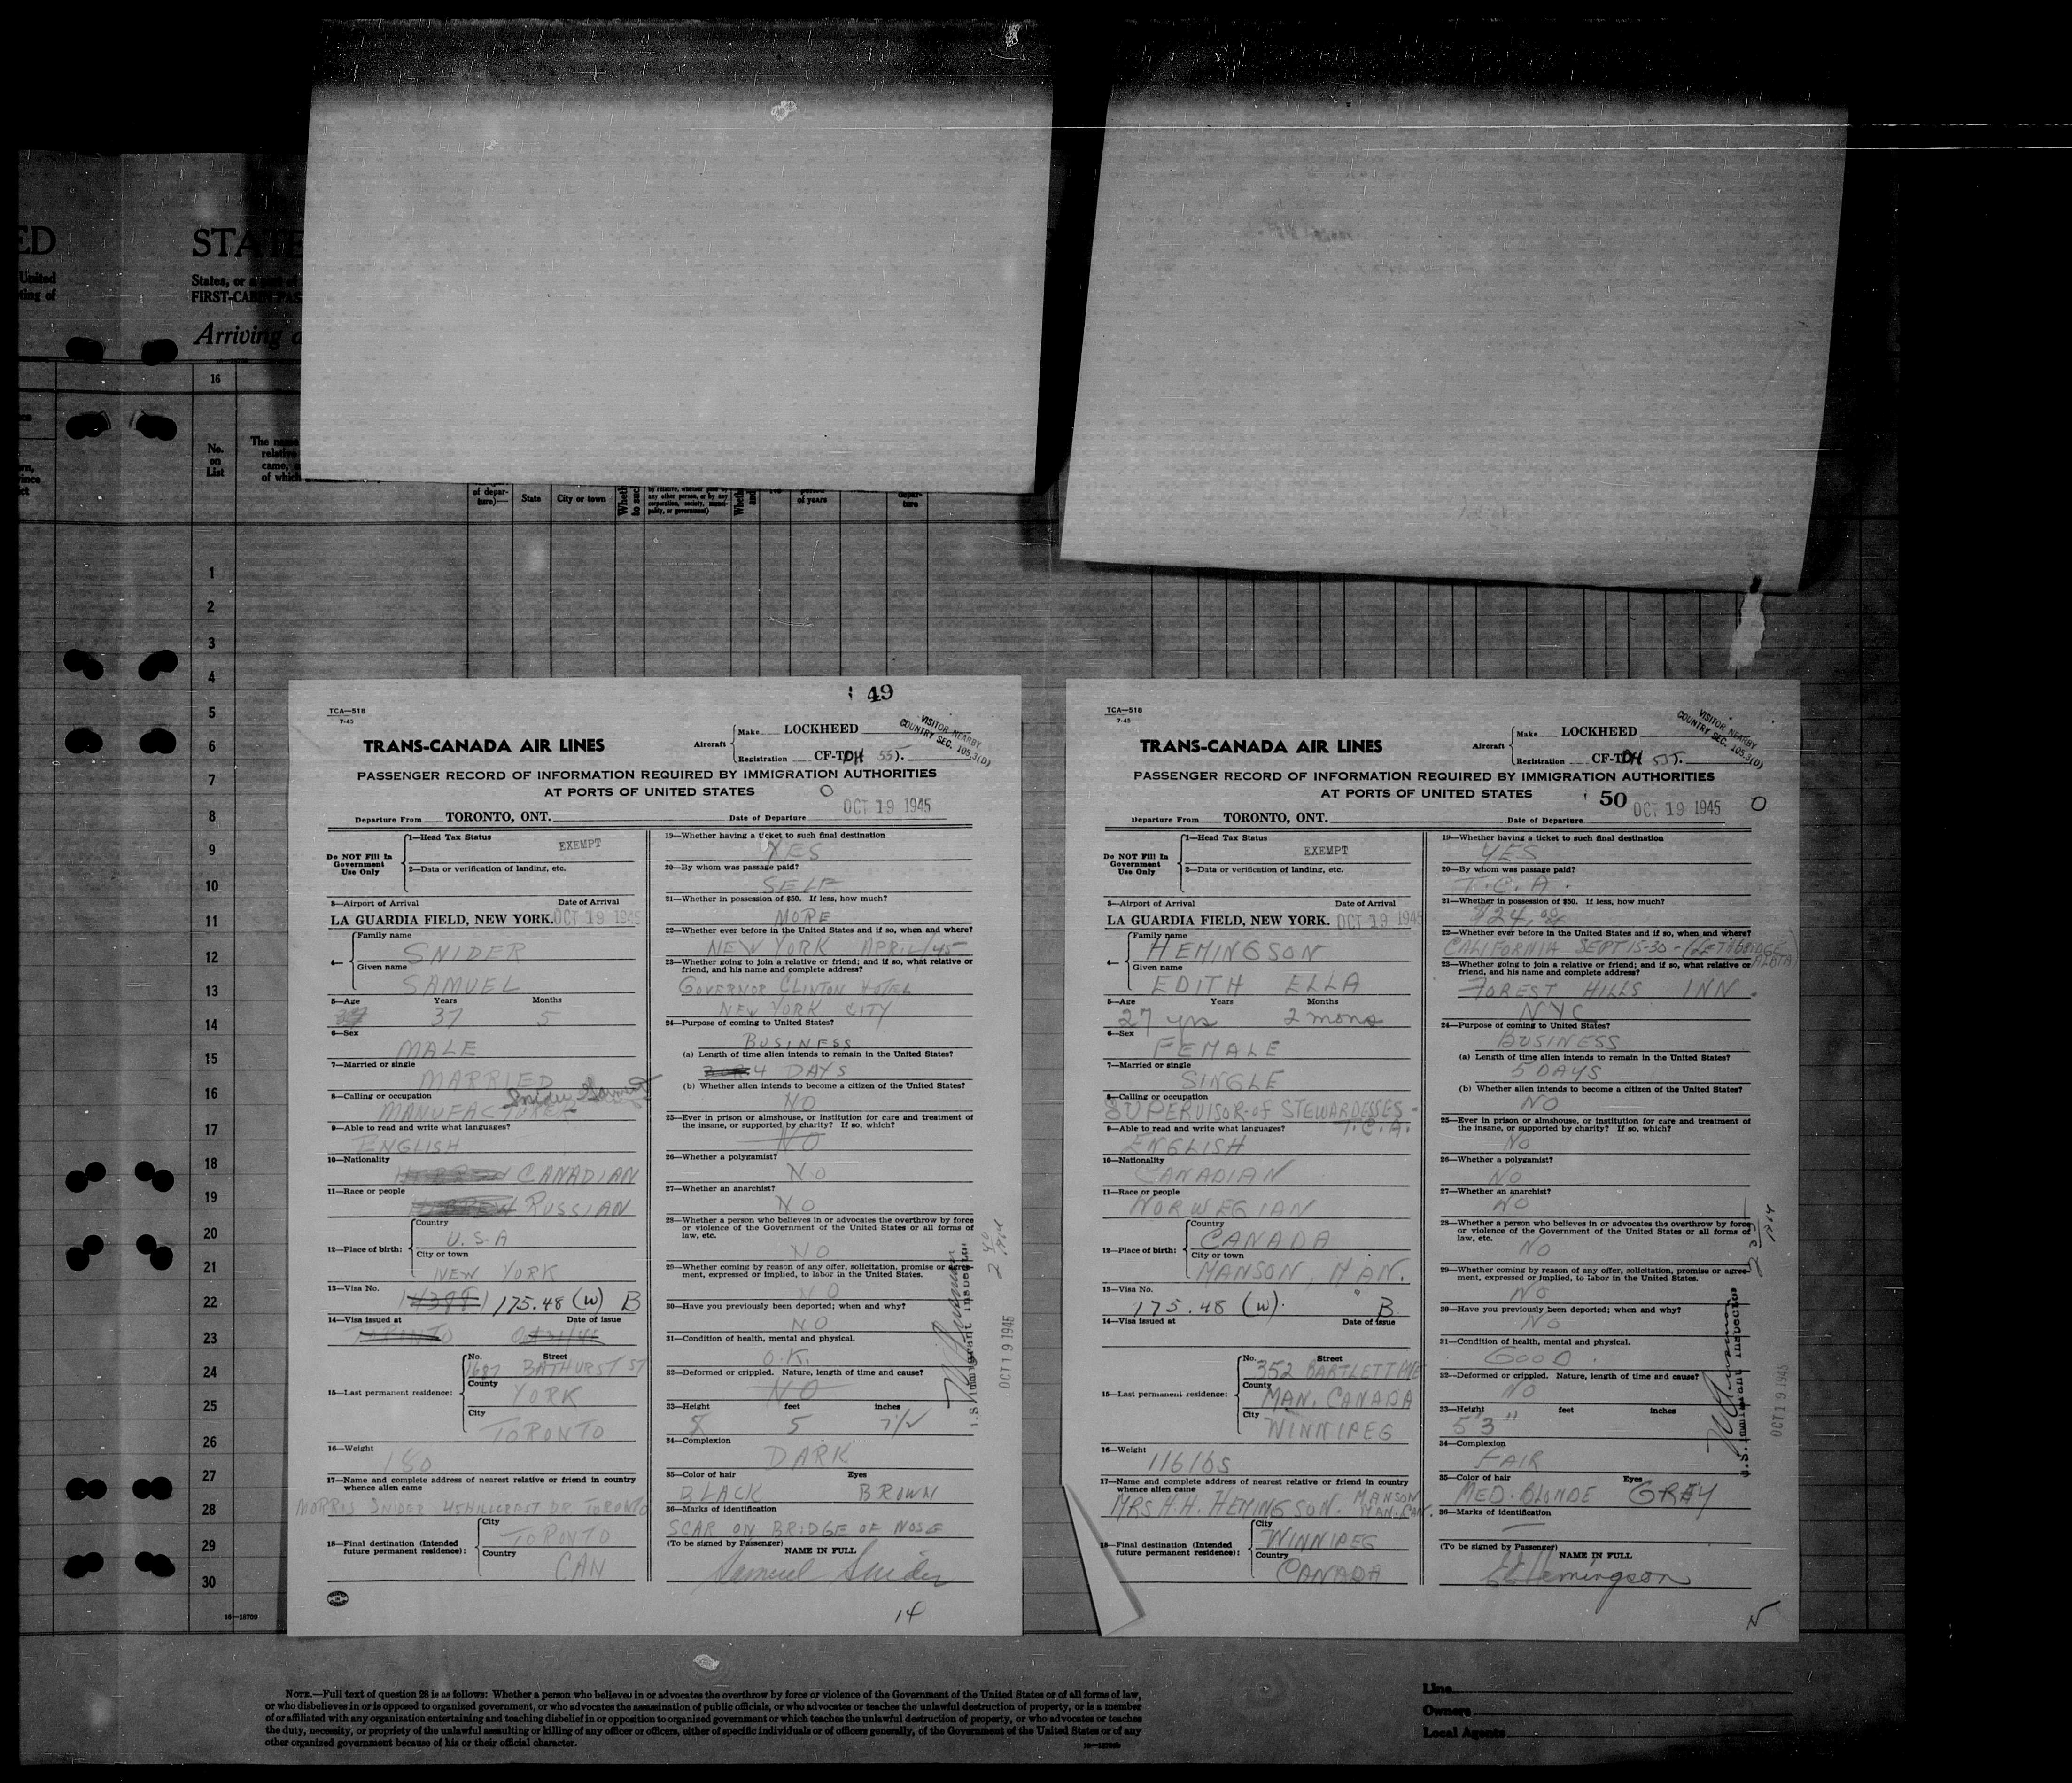 ED
United
ting of
STATE
States, or a part of
FIRST-CABIN PAS
Arriving a
16
No.
on
List
The name
relative
came,
of which
of depar-
ture)—
State
City or town
any other person, or by any
corporation, society, munici-
pality, or government)
of years
depar-
ture
1
2
3
4
5
6
7
8
9
10
11
12
13
14
15
16
17
18
19
20
21
22
23
24
25
26
27
28
29
30
16—18709
49
TCA—518
7-45
TRANS-CANADA AIR LINES
Aircraft
Make LOCKHEED
Registration CF-TDH 55).
VISITOR NEARBY
COUNTRY SEC. 105.3(D)
PASSENGER RECORD OF INFORMATION REQUIRED BY IMMIGRATION AUTHORITIES
AT PORTS OF UNITED STATES
OCT 19 1945
Departure From TORONTO, ONT. Date of Departure
Do NOT Fill In
Government
Use Only
1—Head Tax Status
EXEMPT
2—Data or verification of landing, etc.
3—Airport of Arrival Date of Arrival
LA GUARDIA FIELD, NEW YORK. OCT 19 1945
4—
Family name
SNIDER
Given name
SAMUEL
5—Age Years Months
37 5
6—Sex
MALE
7—Married or single
MARRIED
8—Calling or occupation
Snider Samuel
MANUFACTURER
9—Able to read and write what languages?
ENGLISH
10—Nationality
HEBREW CANADIAN
11—Race or people
HEBREW RUSSIAN
12—Place of birth:
Country
U.S.A
City or town
NEW YORK
13—Visa No.
175.48 (W) B
14—Visa issued at Date of issue
TORONTO
15—Last permanent residence:
No. Street
1687 BATHURST ST
County
YORK
City
TORONTO
16—Weight
180
17—Name and complete address of nearest relative or friend in country
whence alien came
MORRIS SNIDER 45 HILLCREST DR TORONTO
18—Final destination (Intended
future permanent residence):
City
TORONTO
Country
CAN
19—Whether having a ticket to such final destination
YES
20—By whom was passage paid?
SELF
21—Whether in possession of $50. If less, how much?
MORE
22—Whether ever before in the United States and if so, when and where?
NEW YORK APRIL/45
23—Whether going to join a relative or friend; and if so, what relative or
friend, and his name and complete address?
GOVERNOR CLINTON HOTEL
NEW YORK CITY
24—Purpose of coming to United States?
BUSINESS
(a) Length of time alien intends to remain in the United States?
4 DAYS
(b) Whether alien intends to become a citizen of the United States?
NO
25—Ever in prison or almshouse, or institution for care and treatment of
the insane, or supported by charity? If so, which?
NO
26—Whether a polygamist?
NO
27—Whether an anarchist?
NO
28—Whether a person who believes in or advocates the overthrow by force
or violence of the Government of the United States or all forms of
law, etc.
NO
29—Whether coming by reason of any offer, solicitation, promise or agree-
ment, expressed or implied, to labor in the United States.
NO
30—Have you previously been deported; when and why?
NO
31—Condition of health, mental and physical.
O.K.
32—Deformed or crippled. Nature, length of time and cause?
NO
33—Height feet inches
5 7½
34—Complexion
DARK
35—Color of hair Eyes
BLACK BROWN
36—Marks of identification
SCAR ON BRIDGE OF NOSE
(To be signed by Passenger)
NAME IN FULL
Samuel Snider
U.S. Immigrant Inspector
OCT 19 1945
14
TCA—518
7-45
TRANS-CANADA AIR LINES
Aircraft
Make LOCKHEED
Registration CF-TDH 555.
VISITOR NEARBY
COUNTRY SEC. 105.3(D)
PASSENGER RECORD OF INFORMATION REQUIRED BY IMMIGRATION AUTHORITIES
AT PORTS OF UNITED STATES
50 OCT 19 1945
Departure From TORONTO, ONT. Date of Departure
Do NOT Fill In
Government
Use Only
1—Head Tax Status
EXEMPT
2—Data or verification of landing, etc.
3—Airport of Arrival Date of Arrival
LA GUARDIA FIELD, NEW YORK. OCT 19 1945
4—
Family name
HEMINGSON
Given name
EDITH ELLA
5—Age Years Months
27 yrs 2 mons
6—Sex
FEMALE
7—Married or single
SINGLE
8—Calling or occupation
SUPERVISOR-OF STEWARDESSES-
T.C.A.
9—Able to read and write what languages?
ENGLISH
10—Nationality
CANADIAN
11—Race or people
NORWEGIAN
12—Place of birth:
Country
CANADA
City or town
MANSON, MAN.
13—Visa No.
175.48 (W). B
14—Visa issued at Date of issue
15—Last permanent residence:
No. Street
352 BARTLETT AVE
County
MAN. CANADA
City
WINNIPEG
16—Weight
116 lbs
17—Name and complete address of nearest relative or friend in country
whence alien came
MRS H.H. HEMINGSON. MANSON
MAN. CAN.
18—Final destination (Intended
future permanent residence):
City
WINNIPEG
Country
CANADA
19—Whether having a ticket to such final destination
YES
20—By whom was passage paid?
T.C.A.
21—Whether in possession of $50. If less, how much?
$24.00
22—Whether ever before in the United States and if so, when and where?
CALIFORNIA SEPT 15-30-(LETHBRIDGE
ALBTA)
23—Whether going to join a relative or friend; and if so, what relative or
friend, and his name and complete address?
FOREST HILLS INN.
NYC
24—Purpose of coming to United States?
BUSINESS
(a) Length of time alien intends to remain in the United States?
5 DAYS
(b) Whether alien intends to become a citizen of the United States?
NO
25—Ever in prison or almshouse, or institution for care and treatment of
the insane, or supported by charity? If so, which?
NO
26—Whether a polygamist?
NO
27—Whether an anarchist?
NO
28—Whether a person who believes in or advocates the overthrow by force
or violence of the Government of the United States or all forms of
law, etc.
NO
29—Whether coming by reason of any offer, solicitation, promise or agree-
ment, expressed or implied, to labor in the United States.
NO
30—Have you previously been deported; when and why?
NO
31—Condition of health, mental and physical.
GOOD.
32—Deformed or crippled. Nature, length of time and cause?
NO
33—Height feet inches
5'3"
34—Complexion
FAIR
35—Color of hair Eyes
MED. BLONDE GREY
36—Marks of identification
—
(To be signed by Passenger)
NAME IN FULL
E.E. Hemingson
U.S. Immigrant Inspector
OCT 19 1945
NOTE.—Full text of question 28 is as follows: Whether a person who believes in or advocates the overthrow by force or violence of the Government of the United States or of all forms of law,
or who disbelieves in or is opposed to organized government, or who advocates the assassination of public officials, or who advocates or teaches the unlawful destruction of property, or is a member
of or affiliated with any organization entertaining and teaching disbelief in or opposition to organized government or which teaches the unlawful destruction of property, or who advocates or teaches
the duty, necessity, or propriety of the unlawful assaulting or killing of any officer or officers, either of specific individuals or of officers generally, of the Government of the United States or of any
other organized government because of his or their official character.
Line
Owners
Local Agents